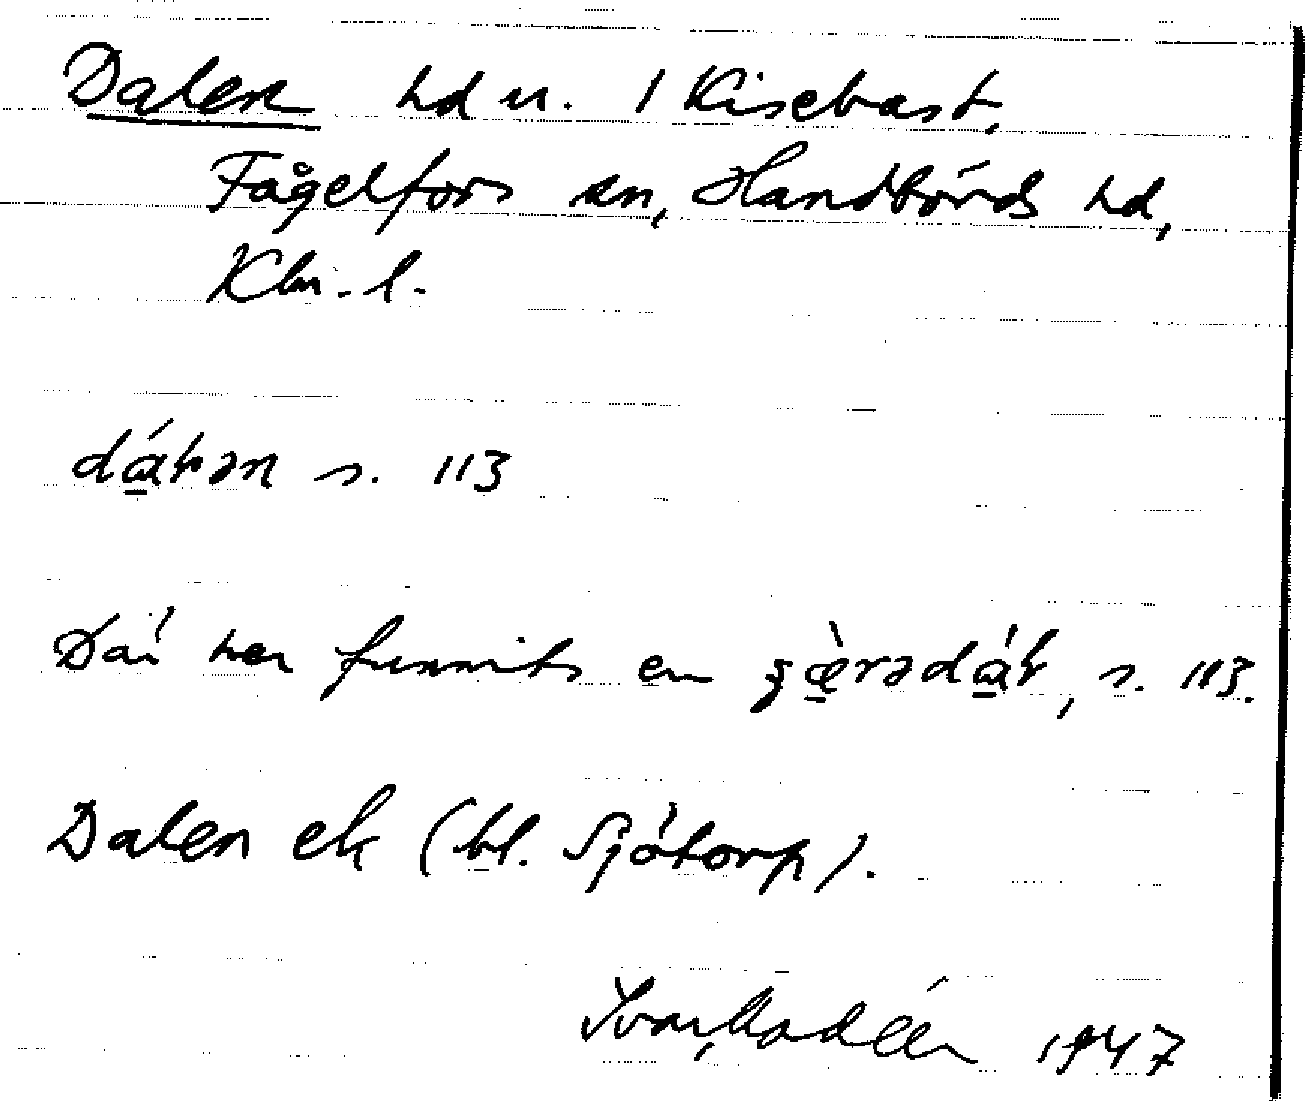 Dalen hd u. 1 Kisebast,
Fågelfors sn, Handbörds hd,
Klm. l.
dɑ́lən s. 113
Där har funnits en gæ̀rədɑ́l, s. 113.
Dalen ek (bl. Sjötorp).
Ivar Modéer 1947